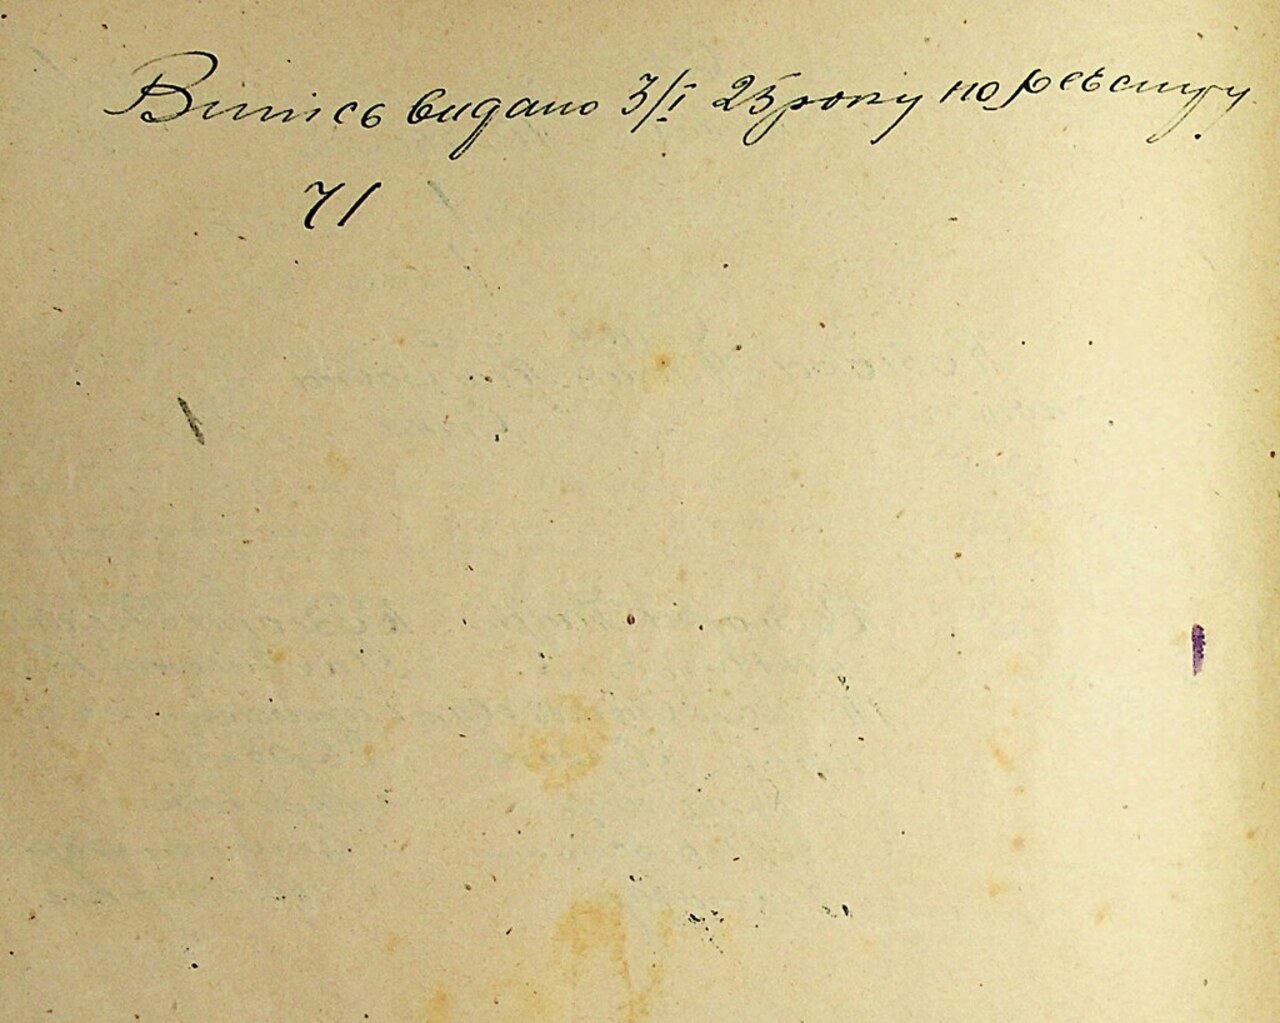 Випісь видано 3/I 25 року по реєстру
71